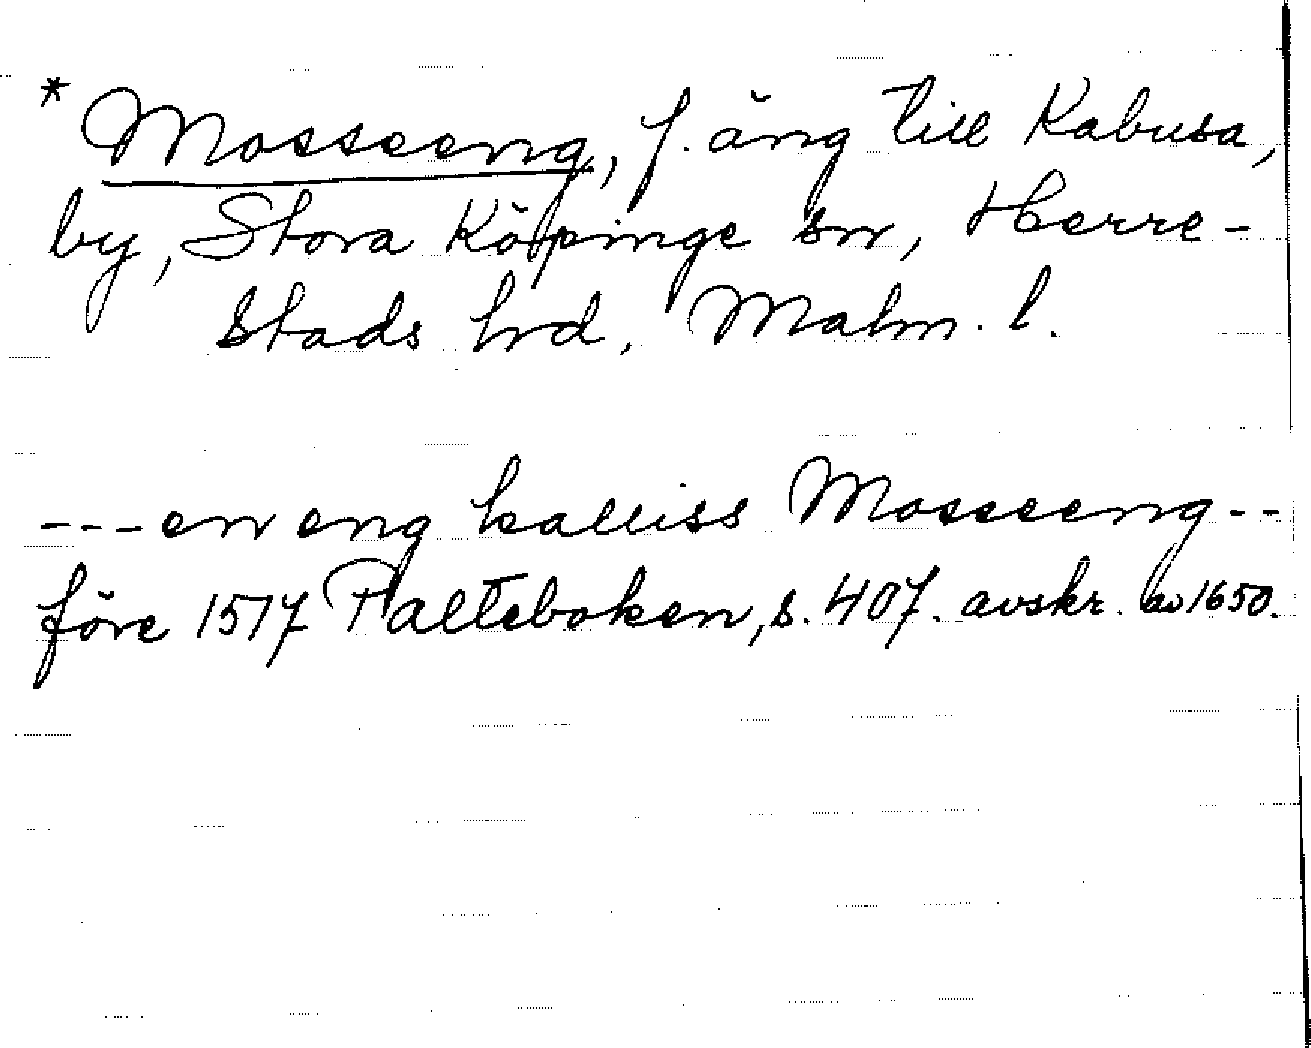 * Mosseeng, f. äng till Kabusa,
by, Stora Köpinge sn, Herre-
stads hrd, Malm. l.
--- en eng kalliss Mosseeng --
före 1517 Palteboken, s. 407. avskr. av 1650.